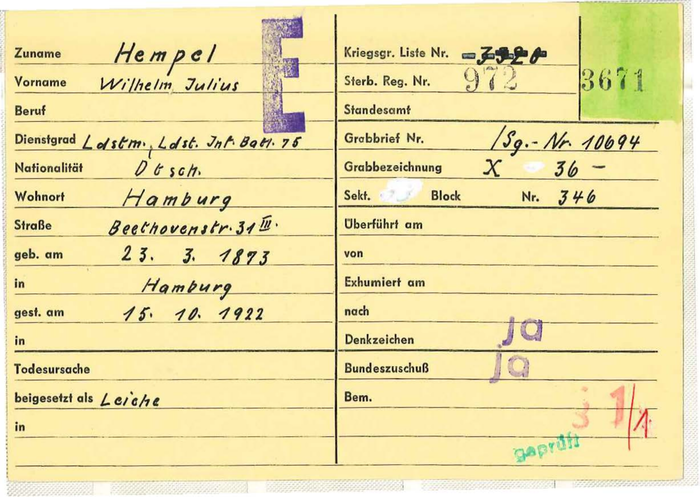 Zuname Hempel
Vorname Wilhelm Julius
Beruf
Dienstgrad Ldstm., Ldst. Inf. Batl. 75
Nationalität Dtsch.
Wohnort Hamburg
Straße Beethovenstr. 31 III.
geb. am 23. 3. 1873
in Hamburg
gest. am 15. 10. 1922
in
Todesursache
beigesetzt als Leiche
in
E
Kriegsgr. Liste Nr.
Sterb. Reg. Nr. 972
3671
Standesamt
Grabbrief Nr. /Sg.-Nr. 10694
Grabbezeichnung X 36 –
Sekt. Block Nr. 346
Überführt am
von
Exhumiert am
nach
Denkzeichen ja
Bundeszuschuß ja
Bem.
1/1
geprüft